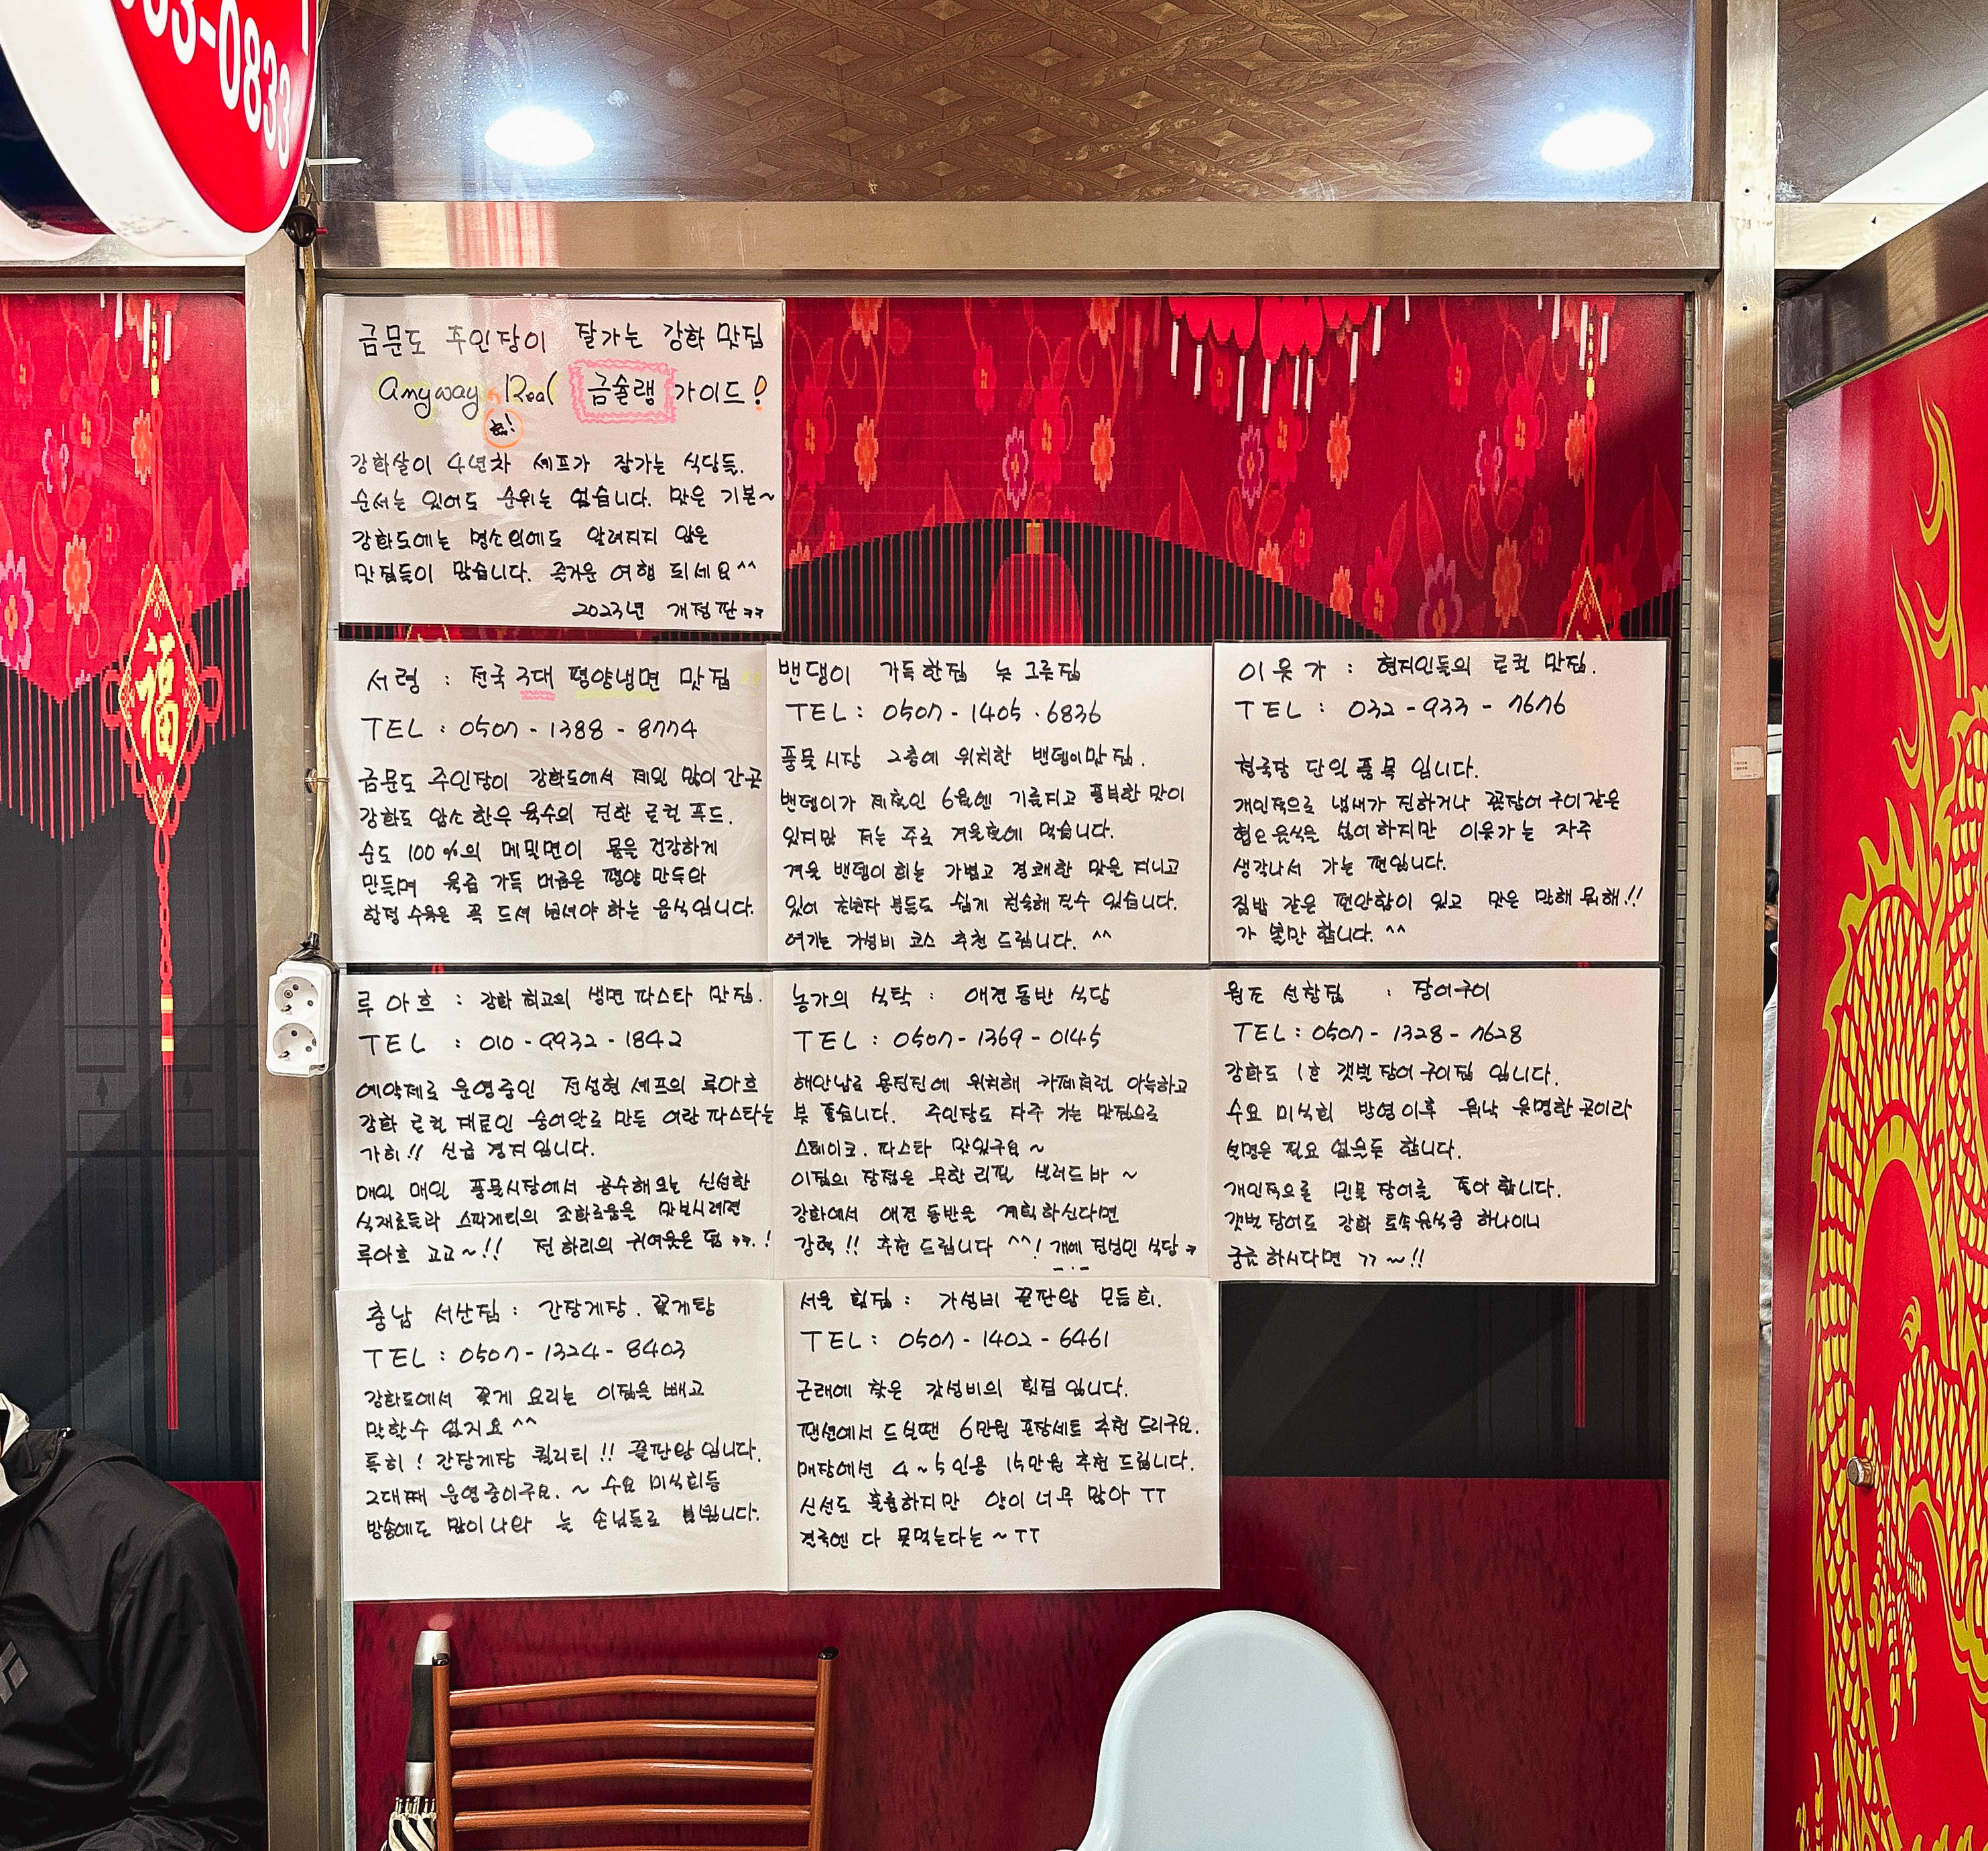 03-0833
금문도 주인장이 잘가는 강화 맛집
Anyway Real 금슐랭 가이드!
강화살이 4년차 셰프가 잘가는 식당들.
순서는 있어도 순위는 없습니다. 맛은 기본~
강화도에는 명소외에도 알려지지 않은
맛집들이 많습니다. 즐거운 여행 되세요^^
2023년 개정판ㅋㅋ
福
서령 : 전국 3대 평양냉면 맛집
TEL : 0507 - 1388 - 8774
금문도 주인장이 강화도에서 제일 많이 간곳
강화도 암소 한우 육수의 진한 로컬 푸드.
순도 100%의 메밀면이 몸을 건강하게
만들며 육즙 가득 머금은 평양 만두와
항정 수육은 꼭 드셔 보셔야 하는 음식입니다.
밴댕이 가득한집 놋그릇집
TEL : 0507 - 1405 . 6836
풍물시장 2층에 위치한 밴댕이맛집.
밴댕이가 제철인 6월엔 기름지고 풍부한 맛이
있지만 저는 주로 겨울철에 먹습니다.
겨울 밴댕이 회는 가볍고 경쾌한 맛을 지니고
있어 초보자 분들도 쉽게 접속해 질수 있습니다.
여기는 가성비 코스 추천 드립니다. ^^
이웃가 : 현지인들의 로컬 맛집.
TEL : 032 - 933 - 7676
청국장 단일 품목 입니다.
개인적으로 냄새가 진하거나 꼼장어 구이같은
혐오 음식은 싫어하지만 이웃가는 자주
생각나서 가는 편입니다.
집밥 같은 편안함이 있고 맛은 말해 뭐해!!
가 볼만 합니다. ^^
루아흐 : 강화 최고의 생면 파스타 맛집.
TEL : 010 - 9932 - 1842
예약제로 운영중인 전성현 셰프의 루아흐
강화 로컬 재료인 숭어알로 만든 어란 파스타는
가히!! 신급 경지입니다.
매일 매일 풍물시장에서 공수해오는 신선한
식재료들과 스파게티의 조화로움을 맛보시려면
루아흐 고고~!! 전하리의 귀여움은 덤ㅋㅋ.!
농가의 식탁 : 애견동반 식당
TEL : 0507 - 1369 - 0145
해안남로 용진진에 위치해 카페처럼 아늑하고
뷰 좋습니다. 주인장도 자주 가는 맛집으로
스테이크. 파스타 맛있구요~
이집의 장점은 무한리필 샐러드바~
강화에서 애견 동반을 계획하신다면
강력!! 추천 드립니다 ^^! 개에 진심인 식당ㅋ
원조 선창집 : 장어구이
TEL : 0507 - 1328 - 7628
강화도 1호 갯벌장어구이집 입니다.
수요 미식회 방영이후 워낙 유명한 곳이라
설명은 필요 없을듯 합니다.
개인적으로 민물 장어를 좋아 합니다.
갯벌 장어도 강화 토속음식중 하나이니
궁금하시다면 ㄱㄱ~!!
충남 서산집 : 간장게장. 꽃게탕
TEL : 0507 - 1324 - 8403
강화도에서 꽃게 요리는 이집을 빼고
말할수 없지요^^
특히! 간장게장 퀄리티!! 끝판왕 입니다.
2대째 운영중이구요. ~ 수요 미식회등
방송에도 많이 나와 늘 손님들로 붐빕니다.
서울 횟집 : 가성비 끝판왕 모듬회.
TEL : 0507 - 1402 - 6461
근래에 찾은 갓성비의 횟집 입니다.
팬션에서 드실땐 6만원 포장세트 추천 드리구요.
매장에선 4~5인용 15만원 추천 드립니다.
신선도 훌륭하지만 양이 너무 많아 ㅜㅜ
결국엔 다 못먹는다는 ~ ㅜㅜ